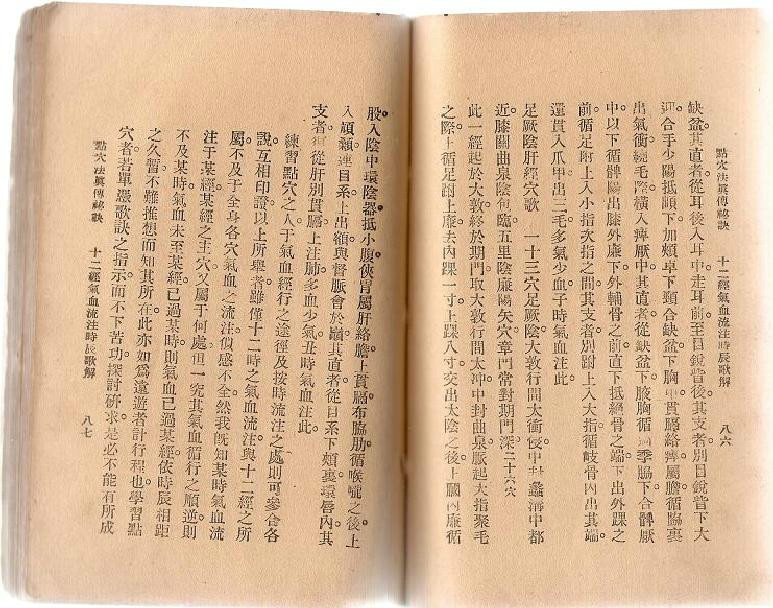 點穴法眞傳秘訣　十二經氣血流注時辰歌解　八六
缺盆。其直者。從耳後入耳中。走耳前。至目銳眥後。其支者。別目銳眥。下大
迎。合手少陽。抵䪼。下加頰車。下頸。合缺盆。下胸中。貫膈。絡肝。屬膽。循脇裏
出氣衝。繞毛際。橫入髀厭中。其直者。從缺盆。下腋。胸循季脇。下合髀厭
中。以下循髀陽。出膝外廉。下外輔骨之前。直下抵絕骨之端。下出外踝之
前。循足跗上。入小指次指之間。其支者。別跗上。入大指。循岐骨內。出其端。
還貫入爪甲。出三毛。多氣少血。子時氣血注此。
足厥陰肝經穴歌　一十三穴足厥陰。大敦行間太衝侵。中封蠡溝中都
近。膝關曲泉陰包臨。五里陰廉陽矢穴。章門常對期門深。二十六穴
此一經起於大敦。終於期門。取大敦行間太冲中封曲泉。脈起大指聚毛
之際。上循足跗上廉。去內踝一寸。上踝八寸。交出太陰之後。上膕內廉。循
股。入陰中。環陰器。抵小腹。俠胃。屬肝。絡膽。上貫膈。布脇肋。循喉嚨之後。上
入頏顙。連目系。上出額。與督脈會於巔。其直者。從目系下頰。裏環唇內。其
支者。復從肝別貫膈。上注肺。多血少氣。丑時氣血注此。
練習點穴之人。于氣血經行之途徑。及按時流注之處。則可參合各
說。互相印證。以上所舉者。雖僅十二時之氣血流注。與十二經之所
屬。不及于全身各穴氣血之流注。似感不全。然我旣知某時氣血流
注于某經。某經之主穴。又屬于何處。但一究其氣血循行之順逆。則
不及某時。氣血未至某經。已過某時。則氣血已過某經。依時辰相距
之久暫。不難推想而知其所在。此亦如爲遠遊者計行程也。學習點
穴者。若單張歌訣之指示。而不下苦功。探討研求。是必不能有所成
點穴法眞傳秘訣　十二經氣血流注時辰歌解　八七